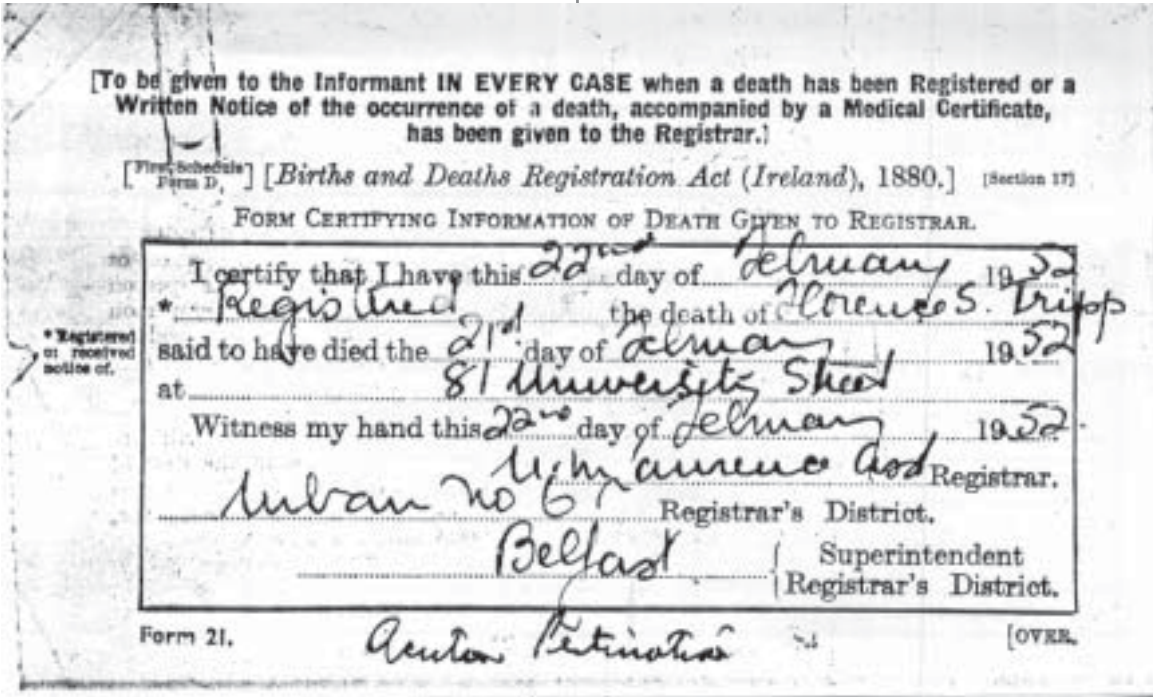 [To be given to the Informant IN EVERY CASE when a death has been Registered or a
Written Notice of the occurrence of a death, accompanied by a Medical Certificate,
has been given to the Registrar.]
[First Schedule Form D.] [Births and Deaths Registration Act (Ireland), 1880.] [Section 17]
FORM CERTIFYING INFORMATION OF DEATH GIVEN TO REGISTRAR.
I certify that I have this 22nd day of February 1952
* Registered the death of Florence S. Tripp
* Registered or received notice of.
said to have died the 21st day of February 1952
at 81 University Street
Witness my hand this 22nd day of February 1952
Asst Registrar.
Urban no 6 Registrar's District.
Belfast { Superintendent Registrar's District.
Form 21. [OVER.